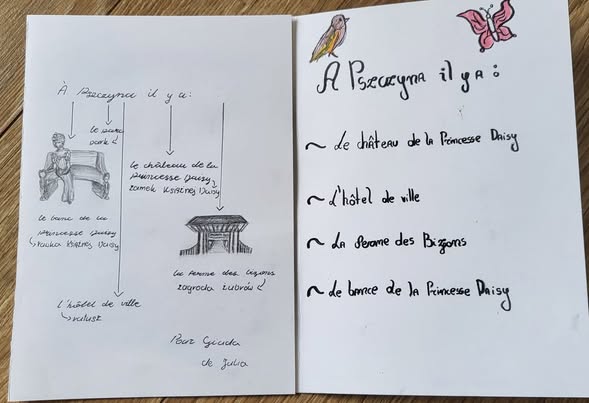 À Pszczyna il y a:
le parc
park
le château de la
Princesse Daisy
zamek Księżnej Daisy
le banc de la
Princesse Daisy
ławka Księżnej Daisy
La Ferme des bizons
zagroda żubrów
l'hôtel de ville
ratusz
Pour Giada
de Julia
À Pszczyna il y a:
~ Le château de la Princesse Daisy
~ L'hôtel de ville
~ La Ferme des Bizons
~ Le bance de la Princesse Daisy